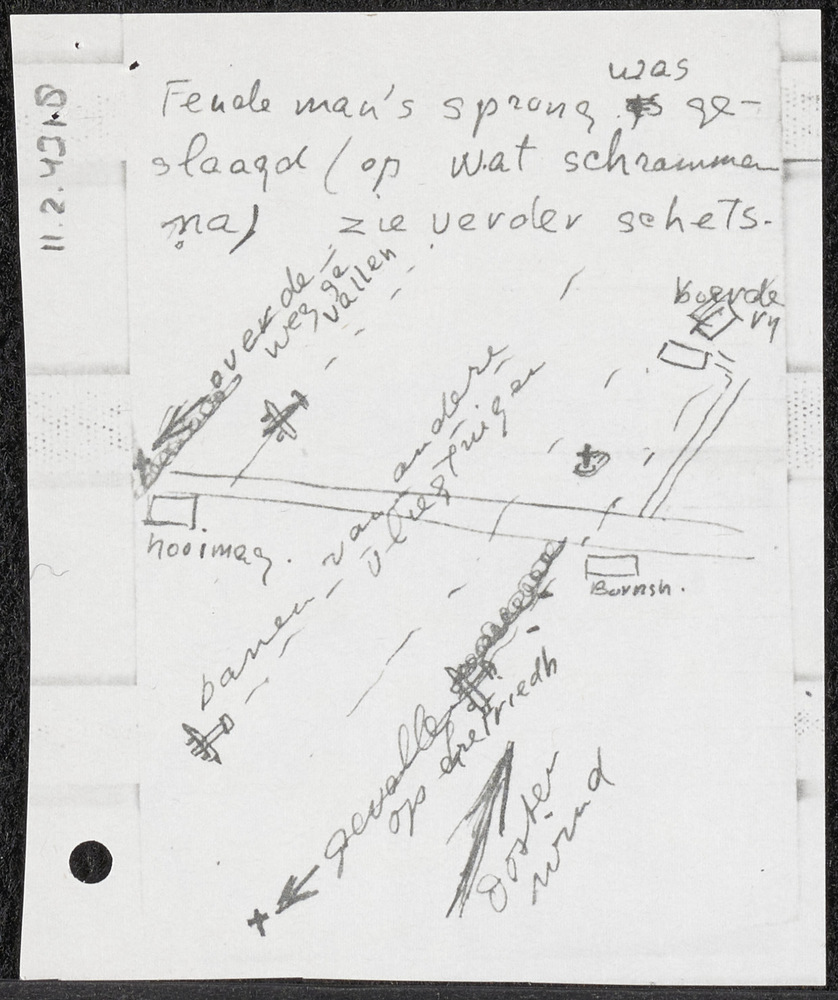 11.2.43 NB
was
Feudeman's sprong ge-
slaagd (op wat schrammen
na) zie verder schets.
over de
weg ge
vallen
boerde
ry
banen van andere
vliegtuigen
hooimag.
Barnsh.
gevallen
op
Ooster
wind